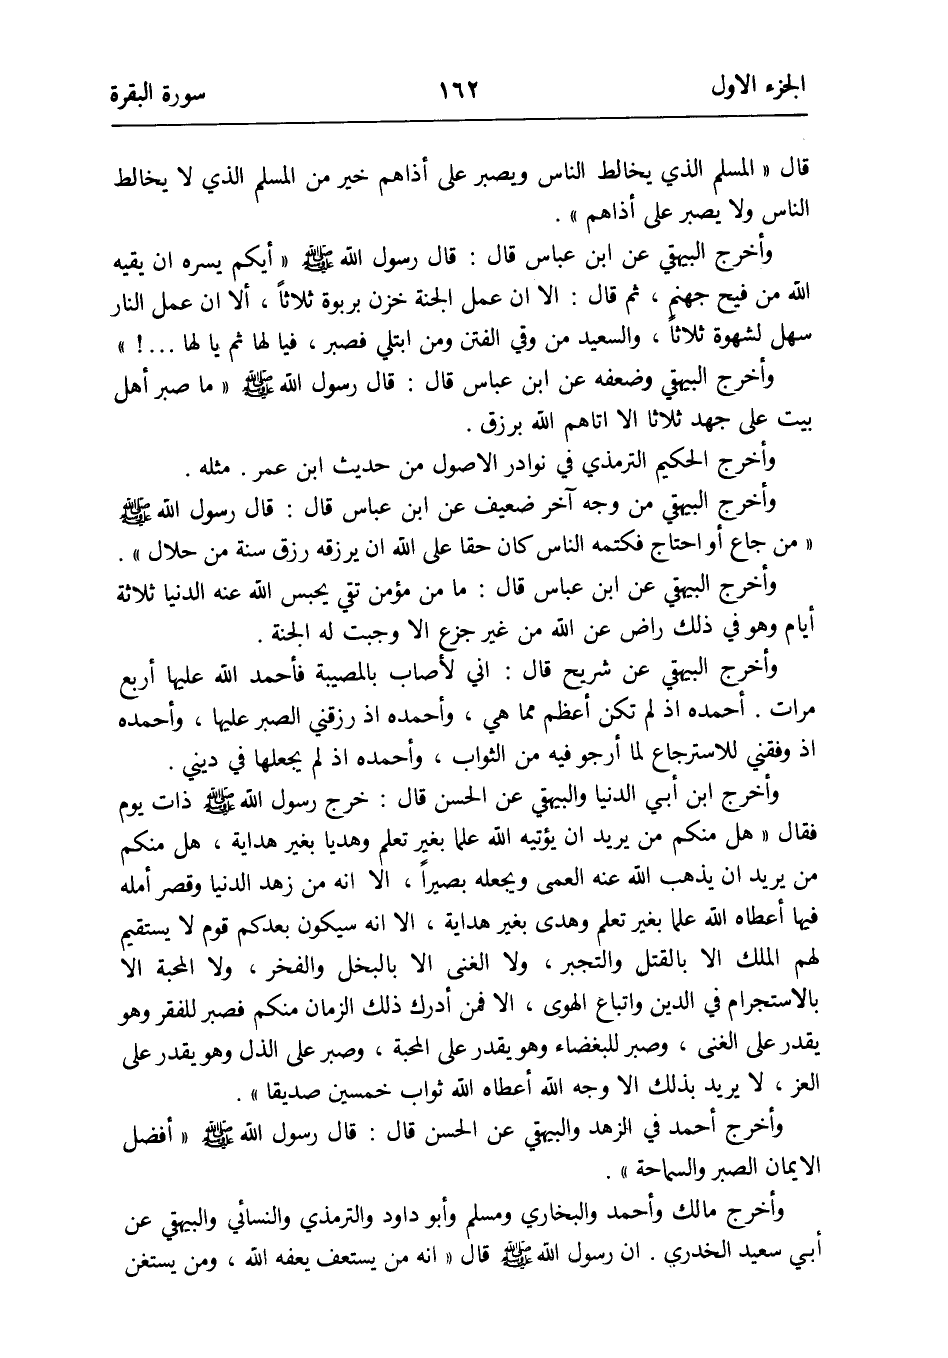 الجزء الاول ١٦٢ سورة البقرة
قال « المسلم الذي يخالط الناس ويصبر على أذاهم خير من المسلم الذي لا يخالط
الناس ولا يصبر على أذاهم » .
وأخرج البيهقي عن ابن عباس قال : قال رسول الله ﷺ « أيكم يسره ان يقيه
الله من فيح جهنم ، ثم قال : الا ان عمل الجنة خزن بربوة ثلاثاً ، ألا ان عمل النار
سهل لشهوة ثلاثاً ، والسعيد من وقي الفتن ومن ابتلي فصبر ، فيا لها ثم يا لها ...! »
وأخرج البيهقي وضعفه عن ابن عباس قال : قال رسول الله ﷺ « ما صبر أهل
بيت على جهد ثلاثا الا اتاهم الله برزق .
وأخرج الحكيم الترمذي في نوادر الاصول من حديث ابن عمر . مثله .
وأخرج البيهقي من وجه آخر ضعيف عن ابن عباس قال : قال رسول الله ﷺ
« من جاع أو احتاج فكتمه الناس كان حقا على الله ان يرزقه رزق سنة من حلال » .
وأخرج البيهقي عن ابن عباس قال : ما من مؤمن تقي يحبس الله عنه الدنيا ثلاثة
أيام وهو في ذلك راض عن الله من غير جزع الا وجبت له الجنة .
وأخرج البيهقي عن شريح قال : اني لأصاب بالمصيبة فأحمد الله عليها أربع
مرات . أحمده اذ لم تكن أعظم مما هي ، وأحمده اذ رزقني الصبر عليها ، وأحمده
اذ وفقني للاسترجاع لما أرجو فيه من الثواب ، وأحمده اذ لم يجعلها في ديني .
وأخرج ابن أبي الدنيا والبيهقي عن الحسن قال : خرج رسول الله ﷺ ذات يوم
فقال « هل منكم من يريد ان يؤتيه الله علما بغير تعلم وهديا بغير هداية ، هل منكم
من يريد ان يذهب الله عنه العمى ويجعله بصيراً ، الا انه من زهد الدنيا وقصر أمله
فيها أعطاه الله علما بغير تعلم وهدى بغير هداية ، الا انه سيكون بعدكم قوم لا يستقيم
لهم الملك الا بالقتل والتجبر ، ولا الغنى الا بالبخل والفخر ، ولا المحبة الا
بالاستجرام في الدين واتباع الهوى ، الا فمن أدرك ذلك الزمان منكم فصبر للفقر وهو
يقدر على الغنى ، وصبر للبغضاء وهو يقدر على المحبة ، وصبر على الذل وهو يقدر على
العز ، لا يريد بذلك الا وجه الله أعطاه الله ثواب خمسين صديقا » .
وأخرج أحمد في الزهد والبيهقي عن الحسن قال : قال رسول الله ﷺ « أفضل
الايمان الصبر والسماحة » .
وأخرج مالك وأحمد والبخاري ومسلم وأبو داود والترمذي والنسائي والبيهقي عن
أبي سعيد الخدري . ان رسول الله ﷺ قال « انه من يستعف يعفه الله ، ومن يستغن